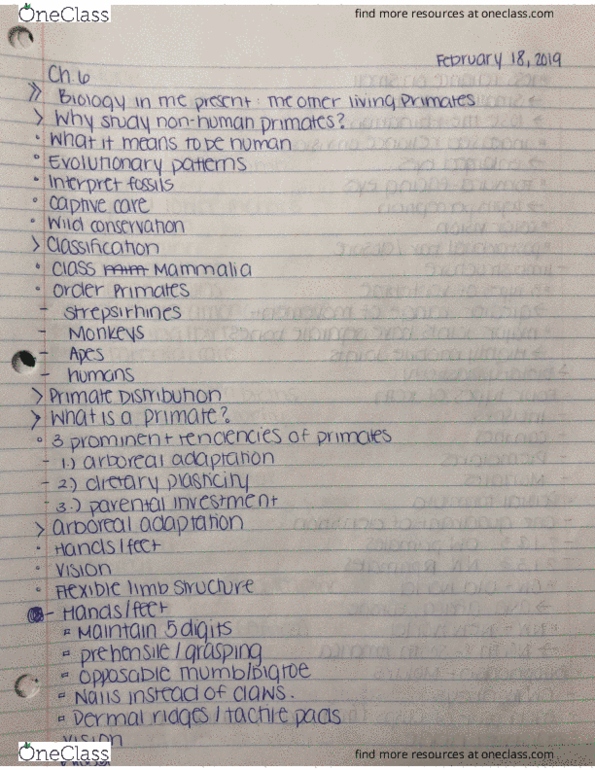 OneClass
find more resources at oneclass.com
February 18, 2019
Ch. 6
>> Biology in the present: the other living Primates
> Why study non-human primates?
• What it means to be human
• Evolutionary patterns
• Interpret fossils
• captive care
• Wild conservation
> Classification
• Class Mammalia
• Order Primates
- Strepsirhines
- Monkeys
- Apes
- humans
> Primate Distribution
> What is a primate?
• 3 prominent tendencies of primates
- 1.) arboreal adaptation
- 2) dietary plasticity
- 3.) parental investment
> arboreal adaptation
• Hands/feet
• Vision
• Flexible limb structure
- Hands/feet
▫ Maintain 5 digits
▫ prehensile/grasping
▫ opposable thumb/bigtoe
▫ Nails instead of claws.
▫ Dermal ridges/tactile pads
Vision
OneClass
find more resources at oneclass.com